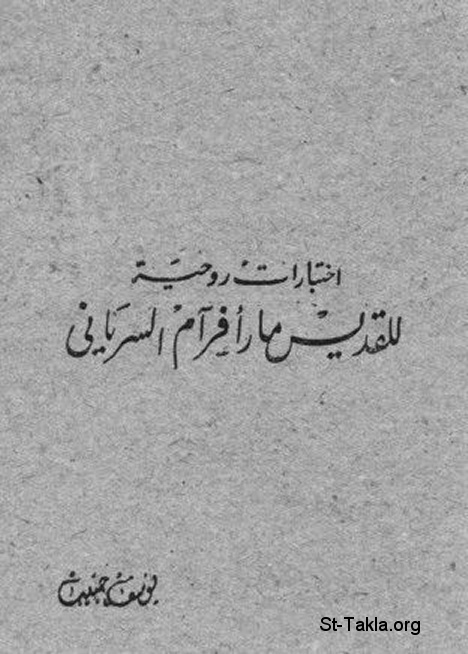 اختبارات روحيّة
للقديس مار أفرآم السرياني
يوسف حبيب
St-Takla.org